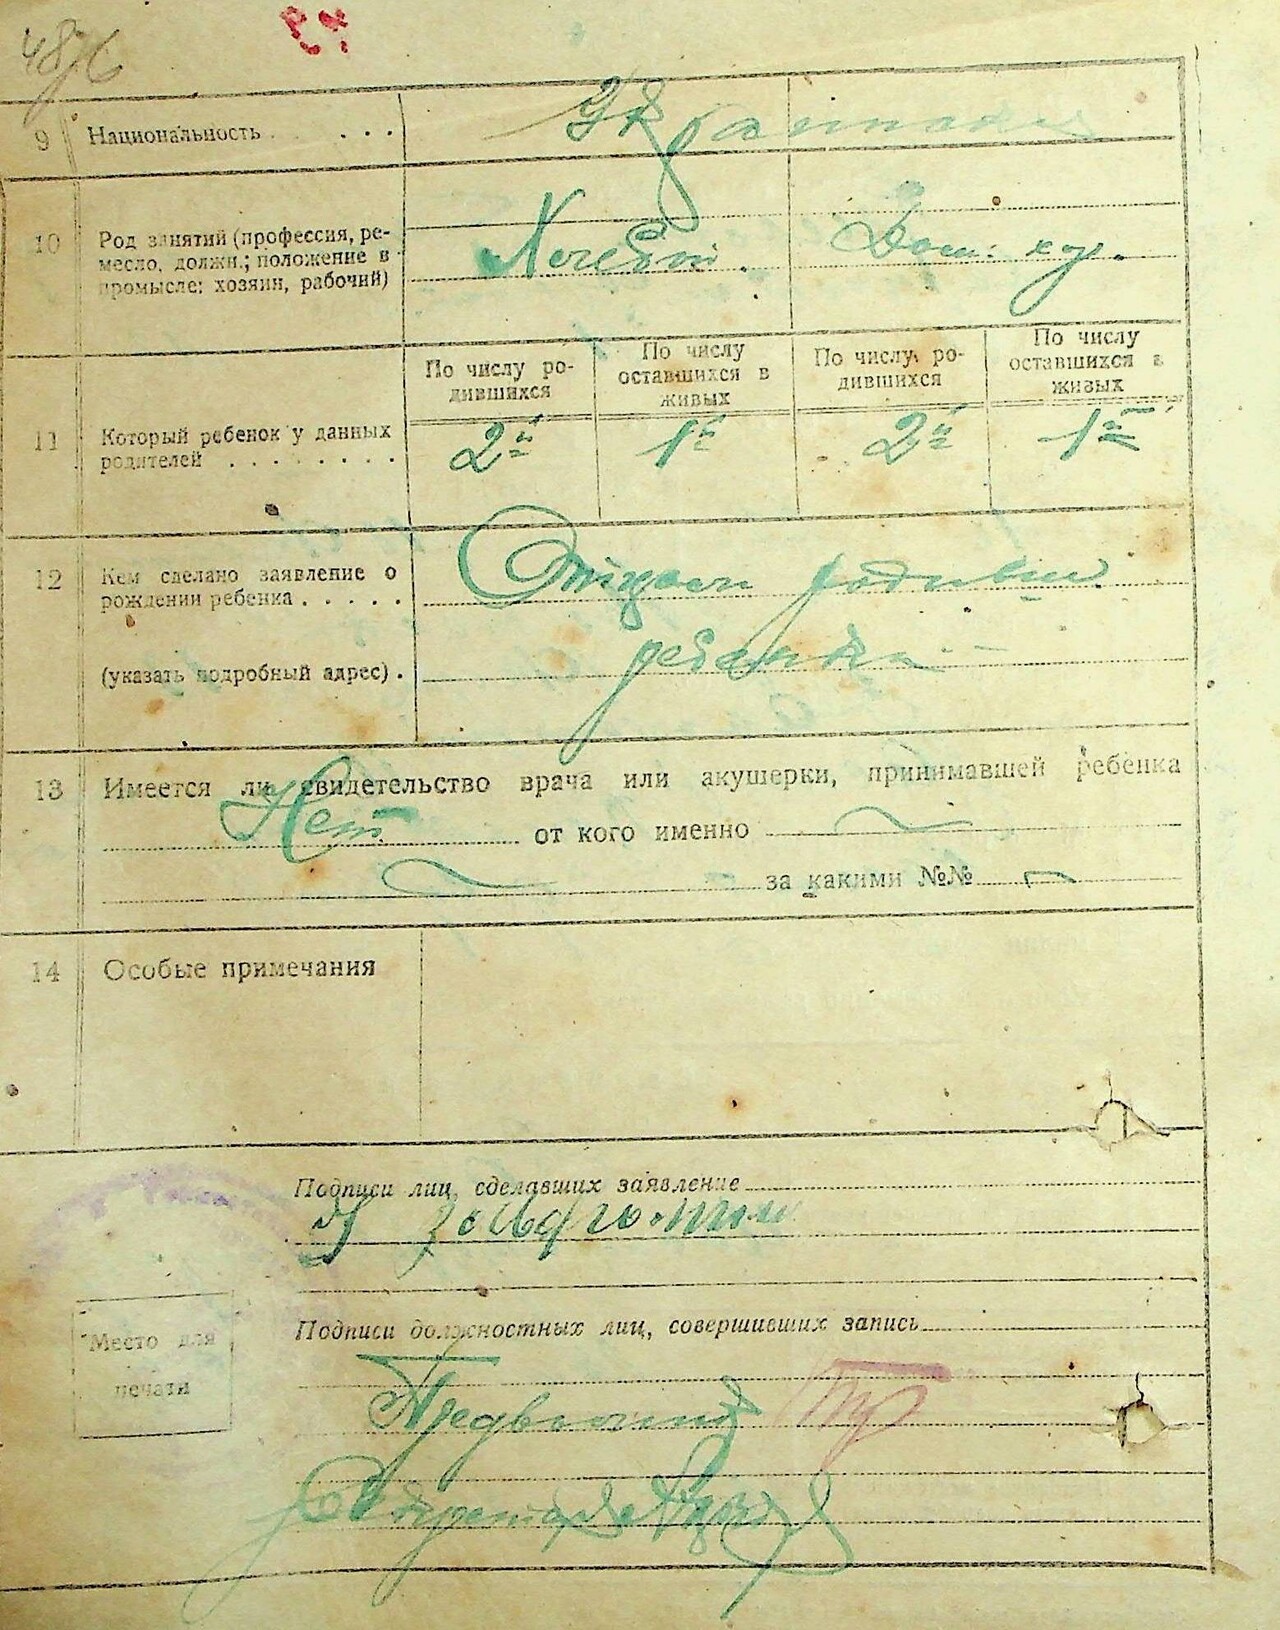 48/6
9 Национальность . . . . Украинцы
10 Род занятий (профессия, ре-
месло, должн.; положение в
промысле: хозяин, рабочий)
Дом: хоз.
По числу ро-
дившихся
По числу
оставшихся в
живых
По числу ро-
дившихся
По числу
оставшихся в
живых
11 Который ребенок у данных
родителей . . . . . . . .
2й 1й 2й 1й
12 Кем сделано заявление о
рождении ребенка . . . . .
Отцом родивш.
(указать подробный адрес) .
ребенка
13 Имеется ли свидетельство врача или акушерки, принимавшей ребенка
Нет от кого именно
за какими №№
14 Особые примечания
Подписи лиц, сделавших заявление
Место для
печати
Подписи должностных лиц, совершивших запись
Секретарь